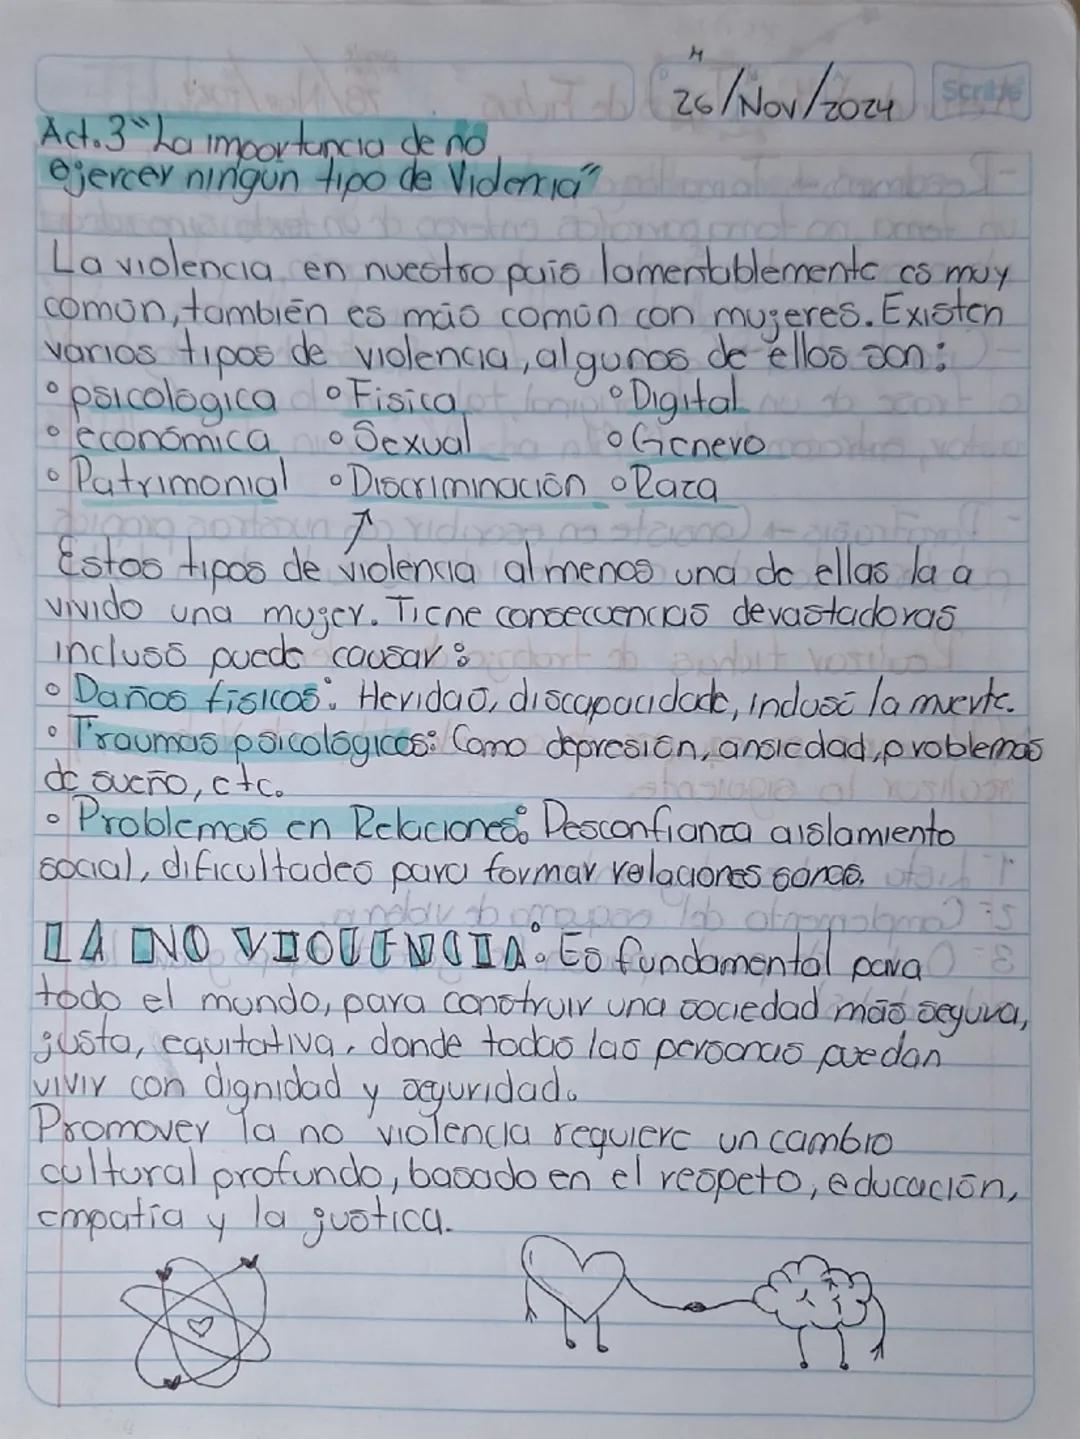 M
26/Nov/2024
Scribe
Act.3 "La importancia de no
ejercer ningún tipo de Violencia"
La violencia en nuestro país lamentablemente es muy
común, también es más común con mujeres. Existen
varios tipos de violencia, algunos de ellos son:
° psicológica ° Fisica ° Digital
° económica ° Sexual ° Genero
° Patrimonial ° Discriminación ° Raza
Estos tipos de violencia al menos una de ellas la a
vivido una mujer. Tiene consecuencias devastadoras
incluso puede causar:
° Daños físicos: Heridas, discapacidade, incluso la muerte.
° Traumas psicológicos: Como depresión, ansiedad, problemas
de sueño, etc.
° Problemas en Relaciones: Desconfianza aislamiento
social, dificultades para formar relaciones sanas.
LA NO VIOLENCIA: Es fundamental para
todo el mundo, para construir una sociedad más segura,
justa, equitativa, donde todas las personas puedan
vivir con dignidad y seguridad.
Promover la no violencia requiere un cambio
cultural profundo, basado en el respeto, educación,
empatía y la justica.